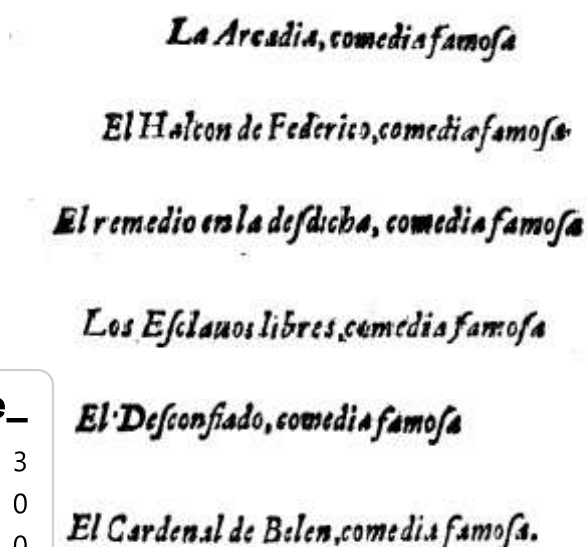 La Arcadia, comedia famoſa
El Halcon de Federico, comedia famoſa
El remedio en la deſdicha, comedia famoſa
Los Eſclauos libres, comedia famoſa
e_
El Deſconfiado, comedia famoſa
3
0
El Cardenal de Belen, comedia famoſa.
0